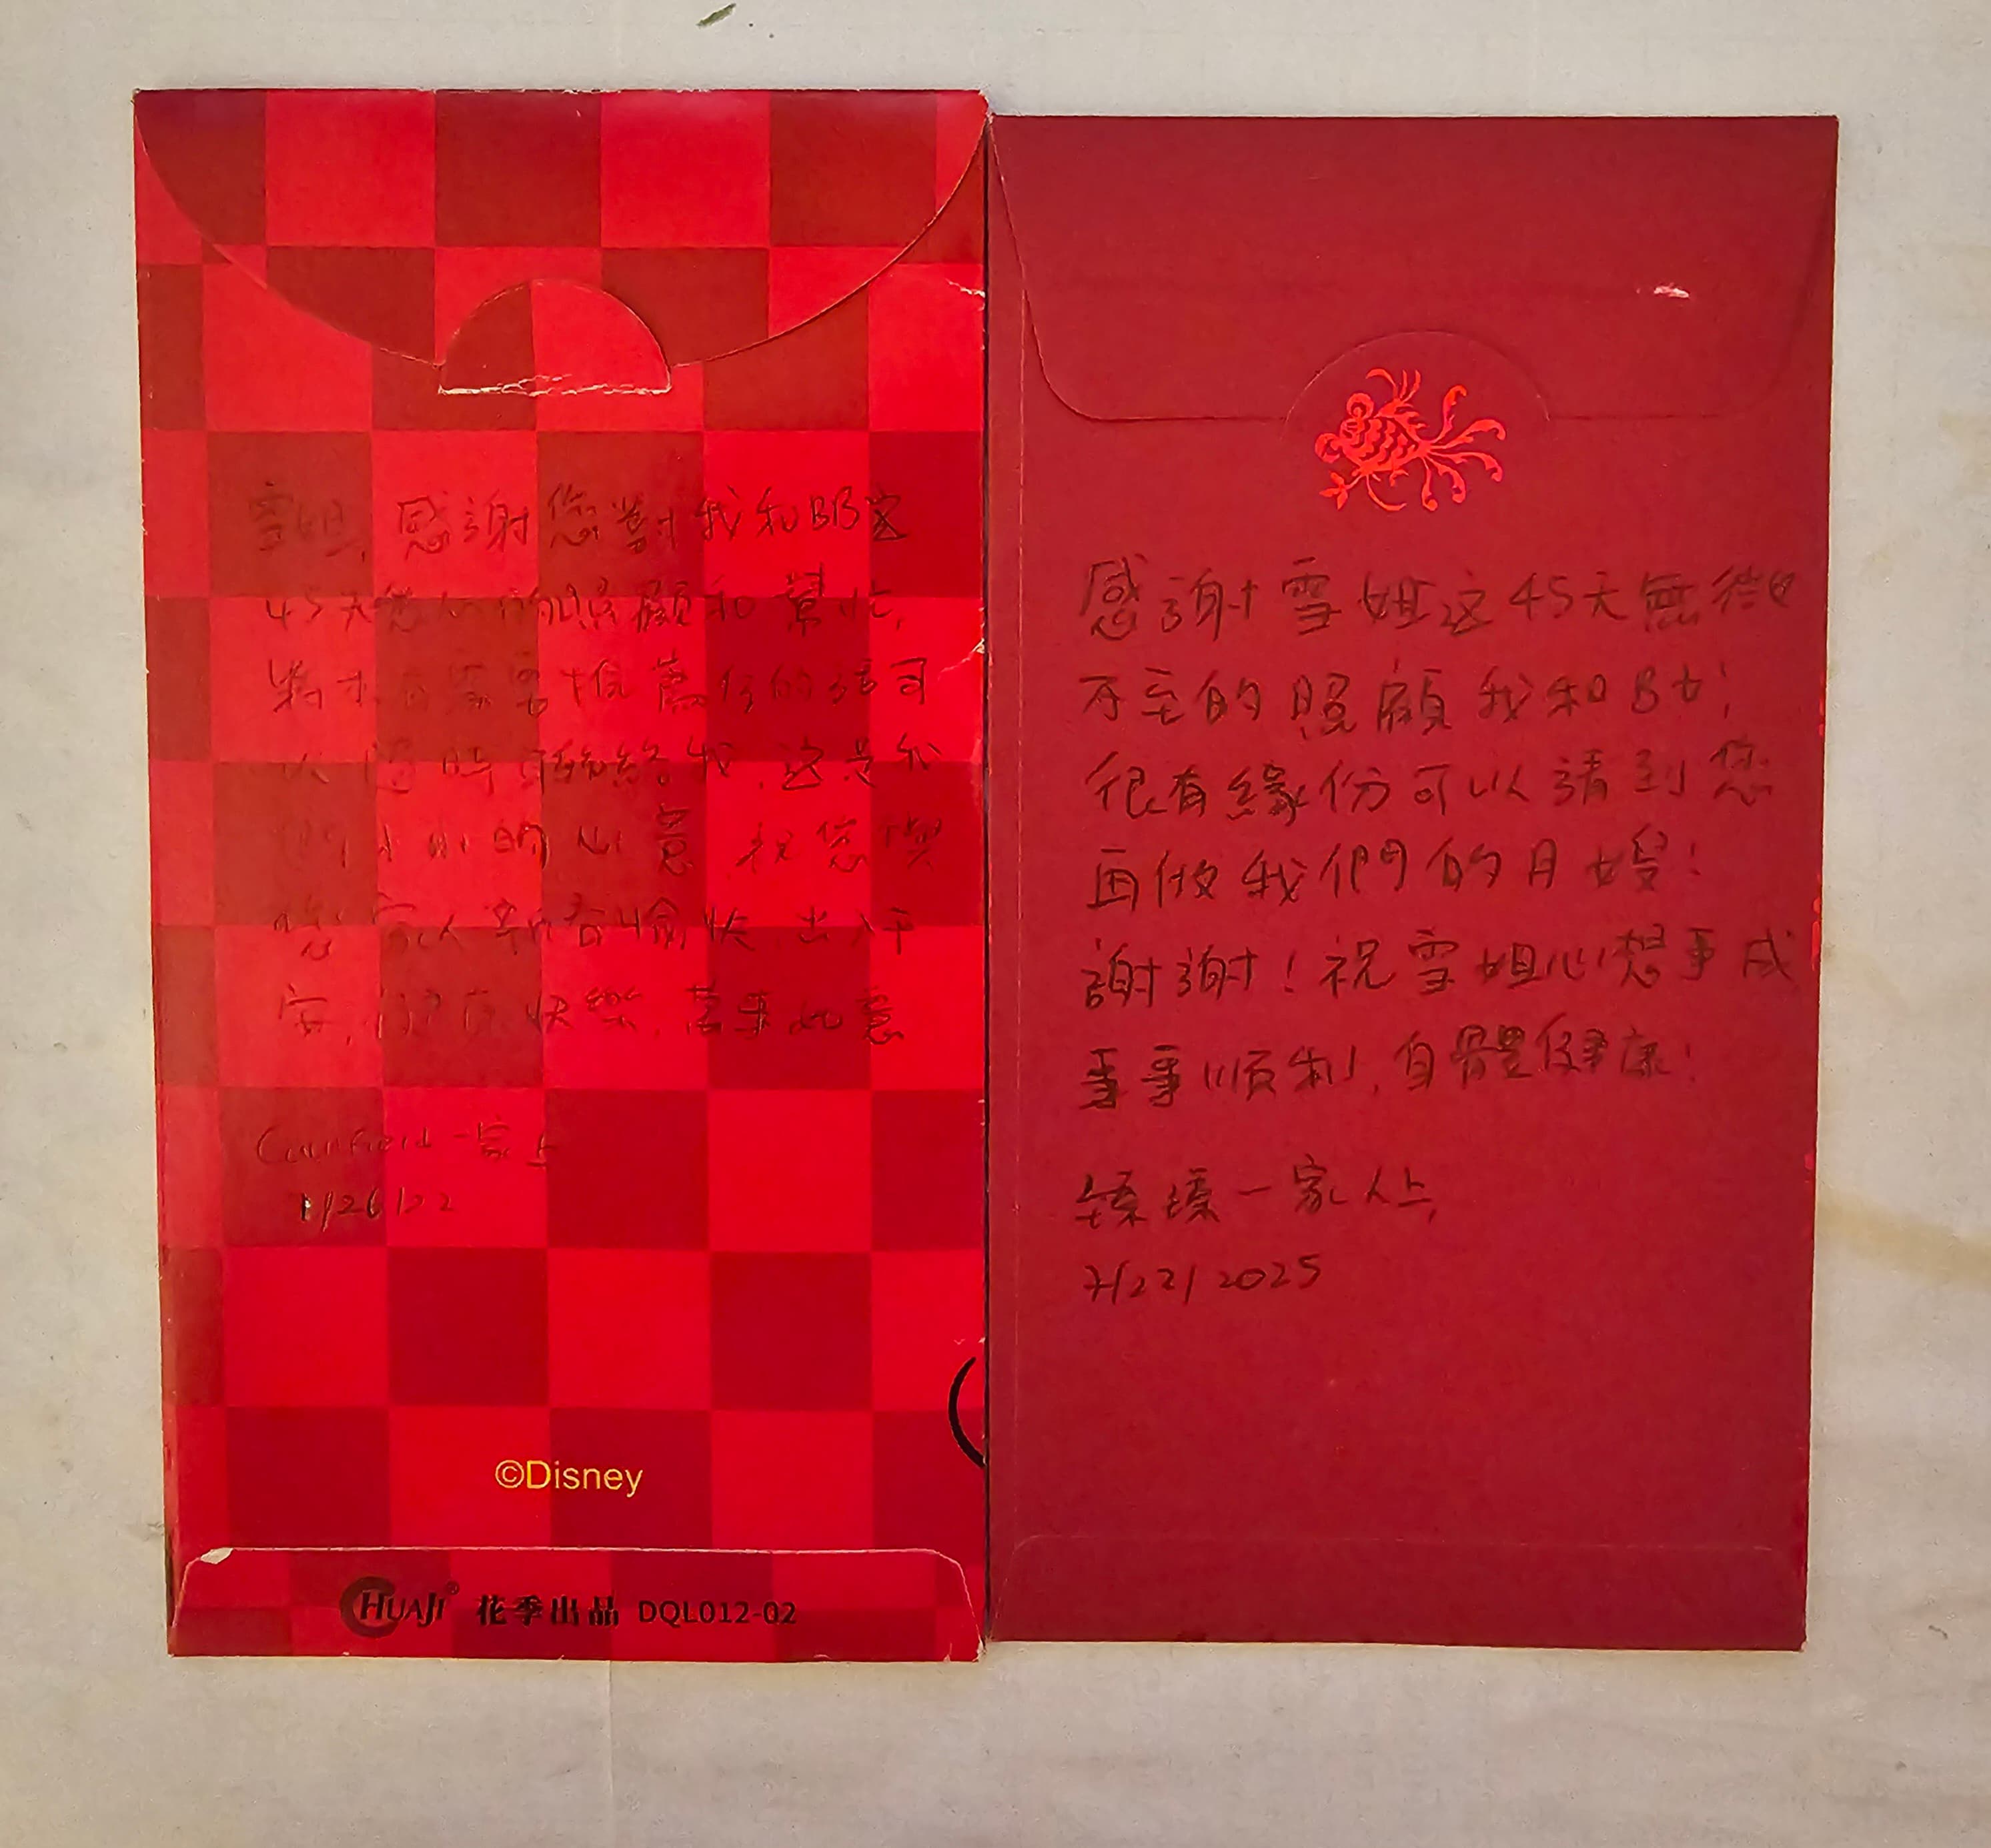 雪姐,感謝您對我和BB这
45天悉心的照顧和幫忙,
將來有需要推薦你的話可
以隨時聯絡我,这是我
們小小的心意,祝您與
您家人新春愉快,出入平
安,健康快樂,萬事如意
一家上
1/26/22
©Disney
HUAJI® 花季出品 DQL012-02
感謝雪姐这45天無微
不至的照顧我和B女!
很有緣份可以請到您
再做我們的月嫂!
謝謝!祝雪姐心想事成
事事順利,身體健康!
一家人上,
7/22/2025